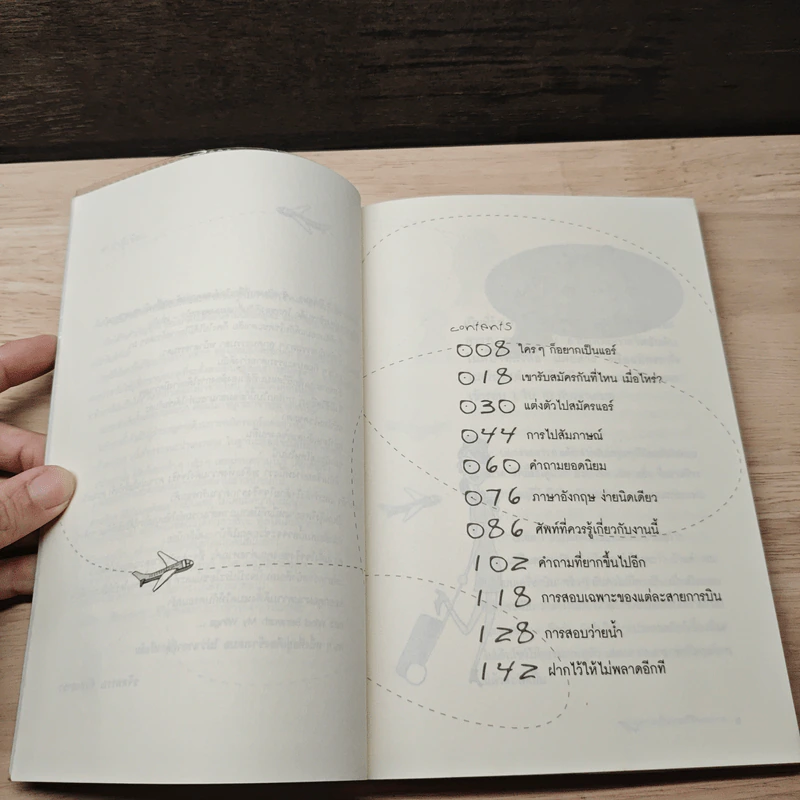 contents
008 ใครๆ ก็อยากเป็นแอร์
018 เขารับสมัครกันที่ไหน เมื่อไหร่?
030 แต่งตัวไปสมัครแอร์
044 การไปสัมภาษณ์
060 คำถามยอดนิยม
076 ภาษาอังกฤษ ง่ายนิดเดียว
086 ศัพท์ที่ควรรู้เกี่ยวกับงานนี้
102 คำถามที่ยากขึ้นไปอีก
118 การสอบเฉพาะของแต่ละสายการบิน
128 การสอบว่ายน้ำ
142 ฝากไว้ให้ไม่พลาดอีกที